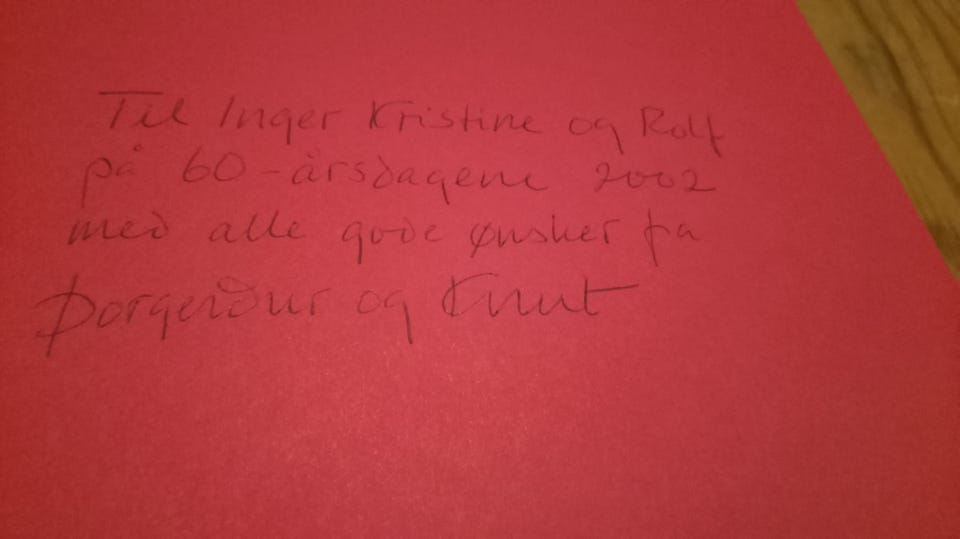 Til Inger Kristine og Rolf
på 60-årsdagene 2002
med alle gode ønsker fra
Þorgerður og Knut